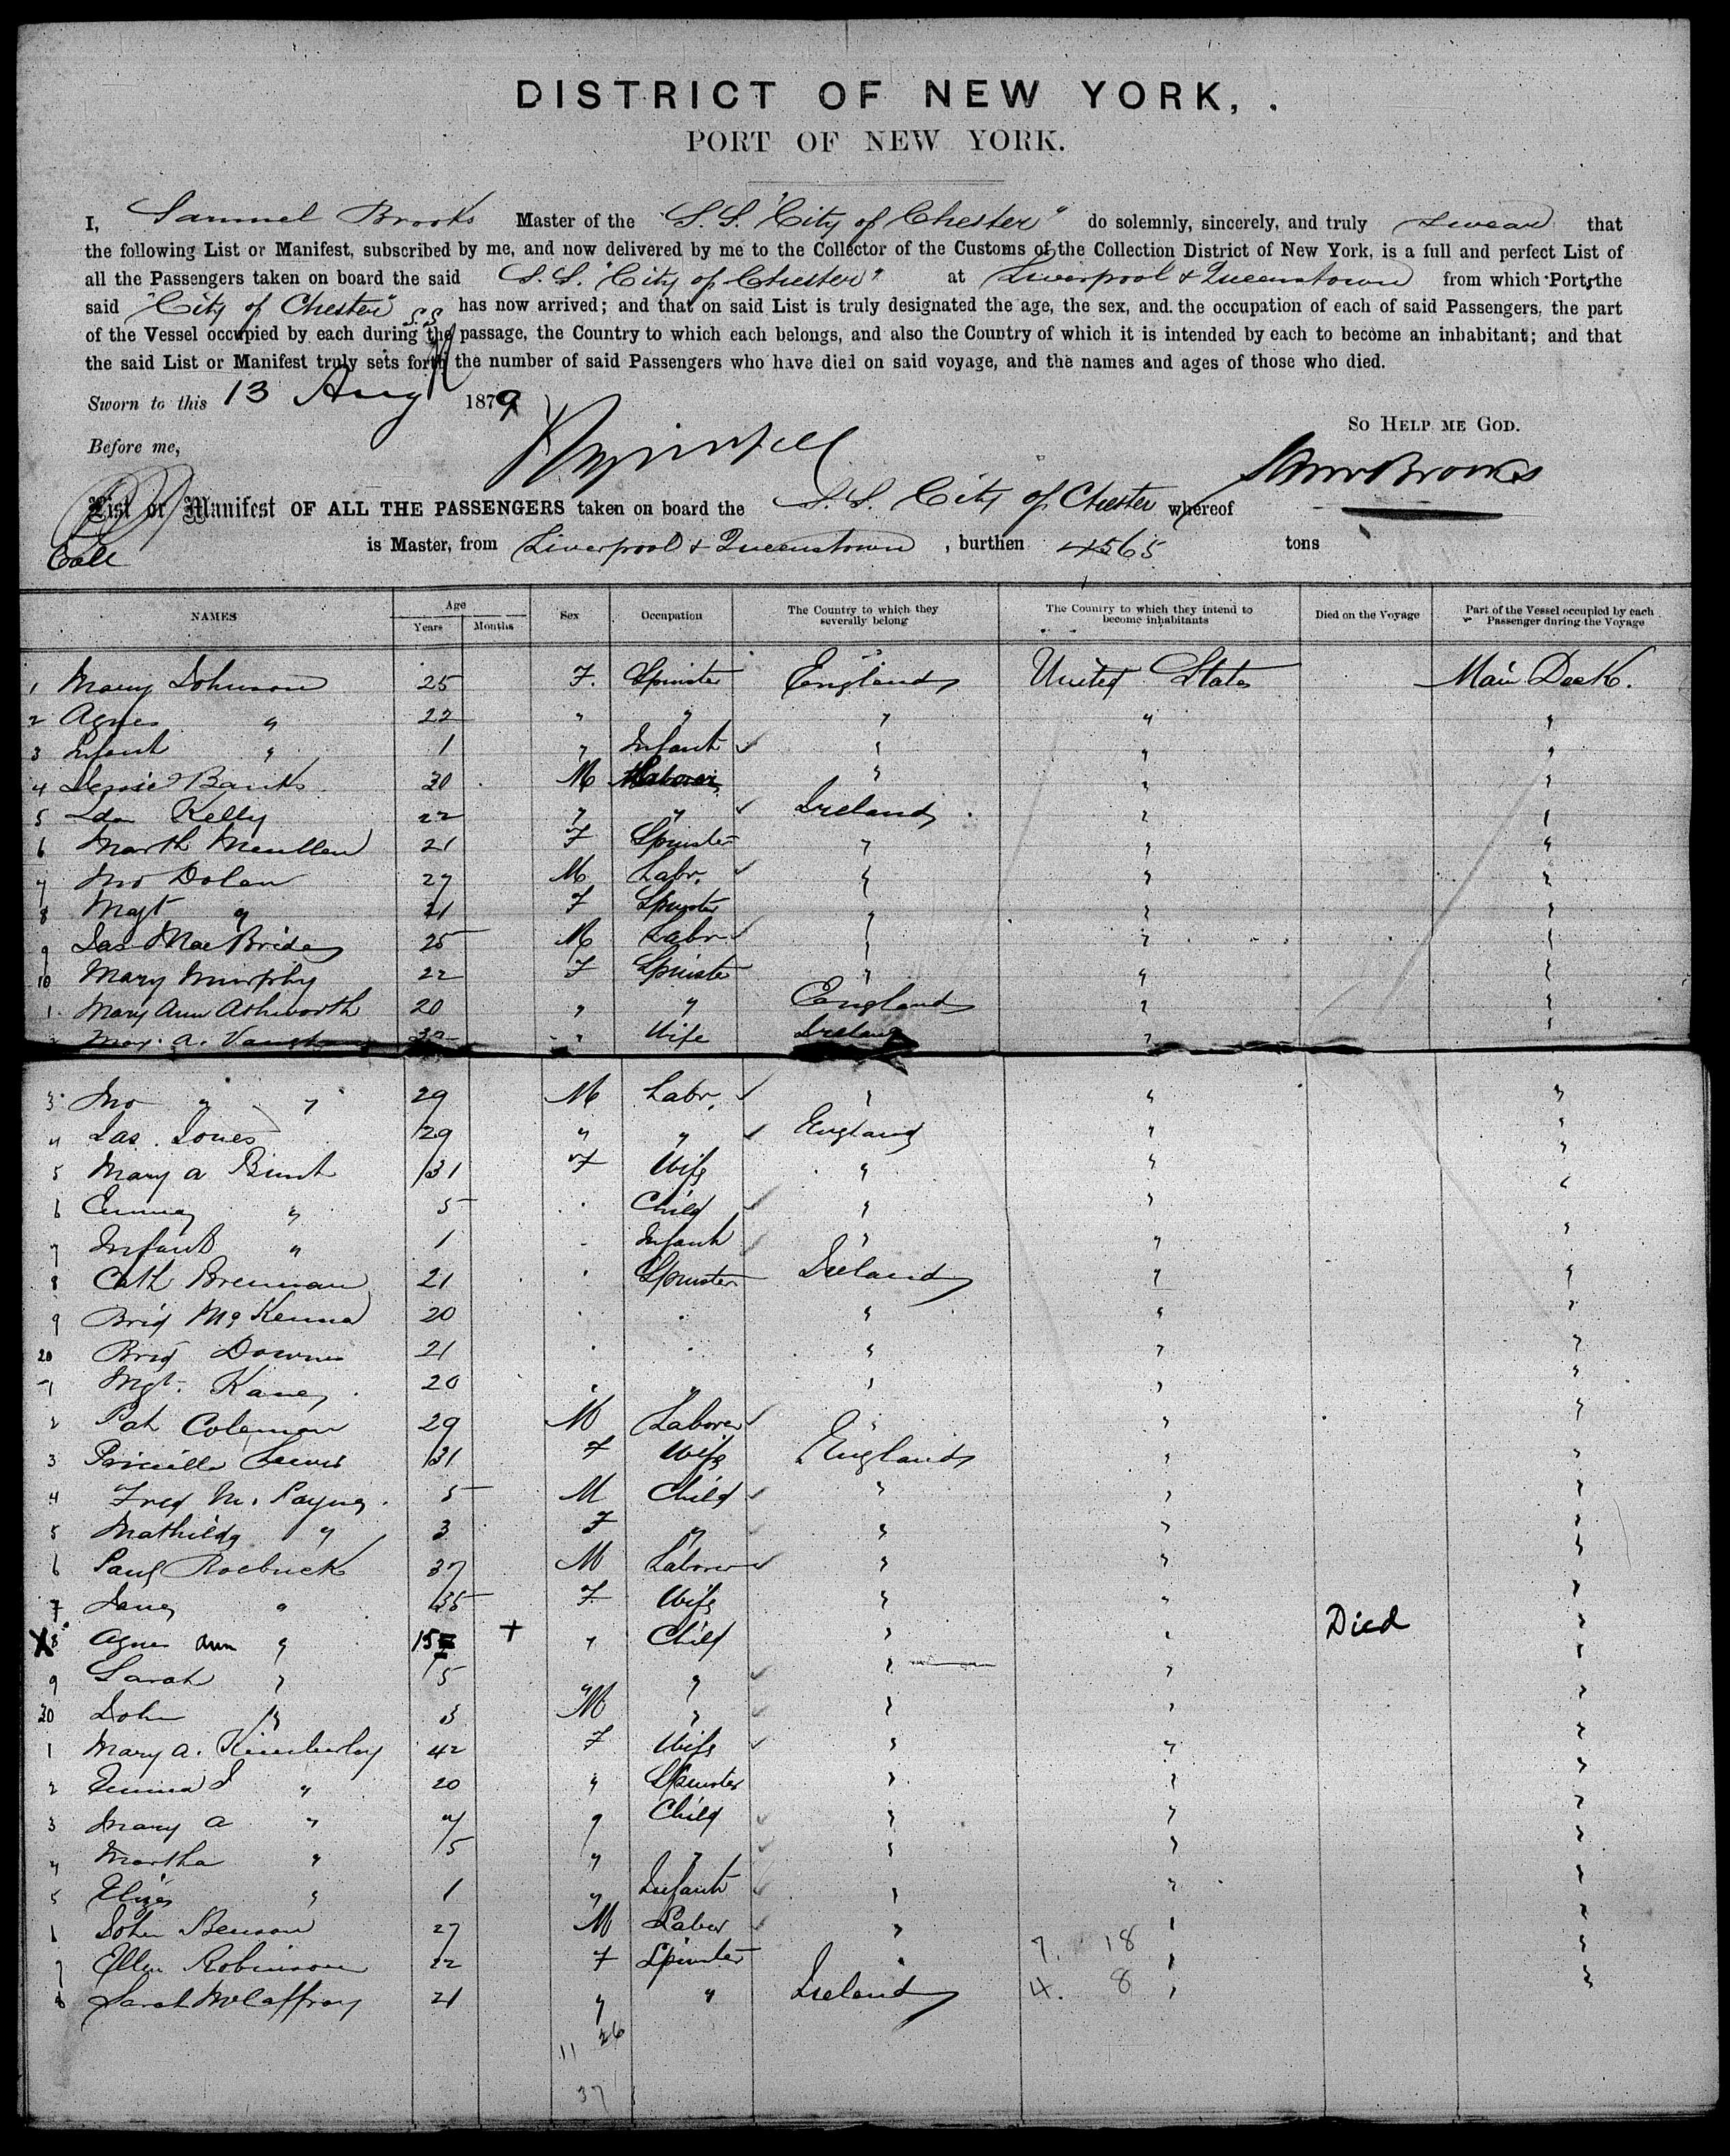 DISTRICT OF NEW YORK,
PORT OF NEW YORK.
I, Samuel Brooks Master of the S.S. "City of Chester" do solemnly, sincerely, and truly swear that
the following List or Manifest, subscribed by me, and now delivered by me to the Collector of the Customs of the Collection District of New York, is a full and perfect List of
all the Passengers taken on board the said S.S. "City of Chester" at Liverpool & Queenstown from which Ports the
said "City of Chester" S.S. has now arrived; and that on said List is truly designated the age, the sex, and the occupation of each of said Passengers, the part
of the Vessel occupied by each during the passage, the Country to which each belongs, and also the Country of which it is intended by each to become an inhabitant; and that
the said List or Manifest truly sets forth the number of said Passengers who have died on said voyage, and the names and ages of those who died.
Sworn to this 13 Aug 1879
So Help me God.
Before me,
Saml Brooks
List or Manifest OF ALL THE PASSENGERS taken on board the S.S. City of Chester whereof
is Master, from Liverpool & Queenstown, burthen 4565 tons
NAMES Age Years Months Sex Occupation The Country to which they severally belong The Country to which they intend to become inhabitants Died on the Voyage Part of the Vessel occupied by each Passenger during the Voyage
1 Mary Johnson 25 F. Spinster England United States Main Deck.
2 Agnes " 22 " " " " "
3 Infant " 1 " Infant " " "
4 Banks 30 M Laborer " " "
5 Kelly 22 " " Ireland " "
6 Marth 21 F Spinster " " "
7 Jno Dolan 27 M Labr. " " "
8 Magt " 21 F Spinster " " "
9 Jas MacBride 25 M Labr " " "
10 Mary Murphy 22 F Spinster " " "
1 Mary Ann Ashworth 20 " " England " "
Mar. A. " Wife Ireland " "
3 Jno " " 29 M Labr. " " "
4 Jas. Jones 29 " " England " "
5 Mary A 31 F Wife " " "
6 Emma " 5 Child " " "
7 Infant " 1 Infant " " "
8 Cath Brennan 21 Spinster Ireland " "
9 Brid McKenna 20 " " "
20 Brid Downes 21 " " "
1 Mgt. Kane 20 " " " " "
2 Pat Coleman 29 M Laborer " " "
3 Priscilla Lewis 31 F Wife England " "
4 Fred M. Payne. 5 M Child " " "
5 Mathilda " 3 F " " " "
6 Paul Roebuck 37 M Laborer " " "
7 Jane " 35 F Wife " " "
X 8 Agnes Ann " 15 + " Child " " Died "
9 Sarah " 5 " " " " "
30 John " 3 M " " " "
1 Mary A. Kimberley 42 F Wife " " "
2 Emma J " 20 " Spinster " " "
3 Mary A " 7 " Child " " "
4 Martha " 5 " " " " "
5 Eliza " 1 " Infant " " "
6 John Benson 27 M Labor " " "
7 Ellen Robinson 22 F Spinster " 7. 18 " "
8 Sarah McCaffray 21 " " Ireland 4. 8 " "
11 26
37